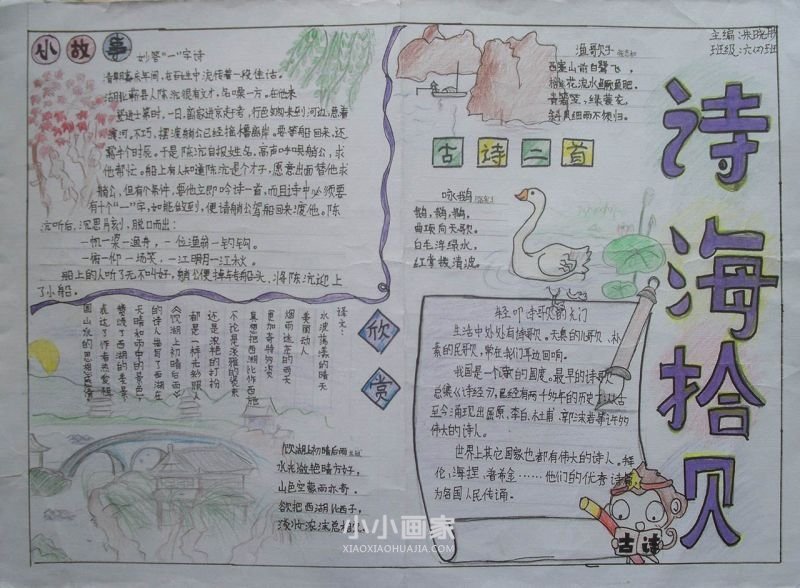 主编:朱晓彤
班级:六(4)班
诗海拾贝
小故事
妙答“一”字诗
清朝嘉庆年间,在民间中流传着一段佳话。
湖北蕲县人陈沆很有才,名噪一方。在他来
登进士第时,一日,首家进京走考,行色匆匆来到河边,急着
渡河。不巧,摆渡艄公已经摇橹离岸。要等船回来,还
需半个时辰。于是陈沆自报姓名,高声呼唤艄公,求
他帮忙。船上有人知道陈沆是个才子,愿意出面替他求
艄公,但有个条件,要他立即吟诗一首,而且诗中必须要
有十个“一”字,如能做到,便请艄公驾船回来渡他。陈
沆听后,沉思片刻,脱口而出:
一帆一桨一渔舟,一位渔翁一钓钩。
一俯一仰一场笑,一江明月一江秋。
船上的人听了无不叫好,艄公便掉转船头,将陈沆迎上
了小船。
渔歌子 张志和
西塞山前白鹭飞,
桃花流水鳜鱼肥。
青箬笠,绿蓑衣,
斜风细雨不须归。
古诗二首
咏鹅
鹅,鹅,鹅,
曲项向天歌。
白毛浮绿水,
红掌拨清波。
轻叩诗歌的大门
生活中处处有诗歌。天真的儿歌,朴
素的民歌,常在我们耳边回响。
我国是一个诗的国度。最早的诗歌
总集《诗经》,已经有两千多年的历史了。从古
至今涌现出屈原、李白、杜甫、郭沫若等许多
伟大的诗人。
世界上其它国家也都有伟大的诗人。拜
伦、海涅、普希金……他们的优秀诗篇,
为各国人民传诵。
古诗
欣赏
译文:
水波荡漾的晴天
美丽动人
烟雨迷茫的雨天
更加奇特多姿
真想把西湖比作西施
不论是淡雅的装束
还是浓艳的打扮
都是一样光彩照人
《饮湖上初晴后雨》
的诗人描写了西湖在
天晴和雨中的景色,
赞美了西湖的美景,
表达了作者热爱祖
国山水的思想感情
饮湖上初晴后雨
水光潋滟晴方好,
山色空蒙雨亦奇。
欲把西湖比西子,
淡妆浓抹总相宜。
小小画家
XIAOXIAOHUAJIA.COM